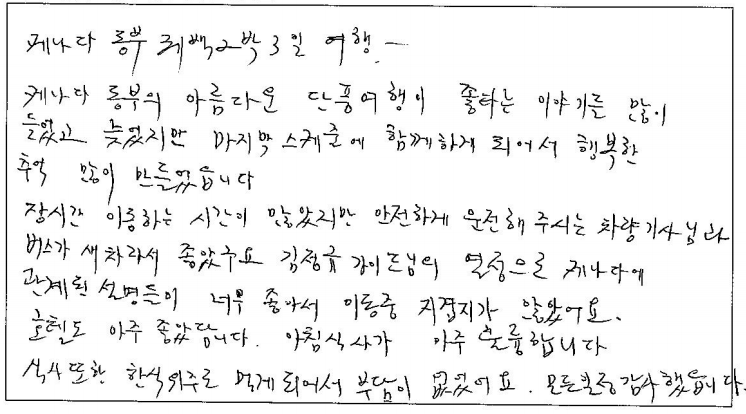 케나다 동부 퀘백 2박 3일 여행. —
케나다 동부의 아름다운 단풍여행이 좋타는 이야기를 많이
들었고 늦었지만 마지막 스케줄에 함께하게 되어서 행복한
추억 많이 만들었읍니다
장시간 이동하는 시간이 많았지만 안전하게 운전해 주시는 차량기사님과
버스가 새차라서 좋았구요 김정규 가이드님의 열정으로 케나다에
관계된 설명들이 너무 좋아서 이동중 지겹지가 않았어요.
호텔도 아주 좋았답니다. 아침식사가 아주 훌륭합니다
식사 또한 한식위주로 먹게되어서 부담이 없었어요. 모든분들 감사했읍니다.